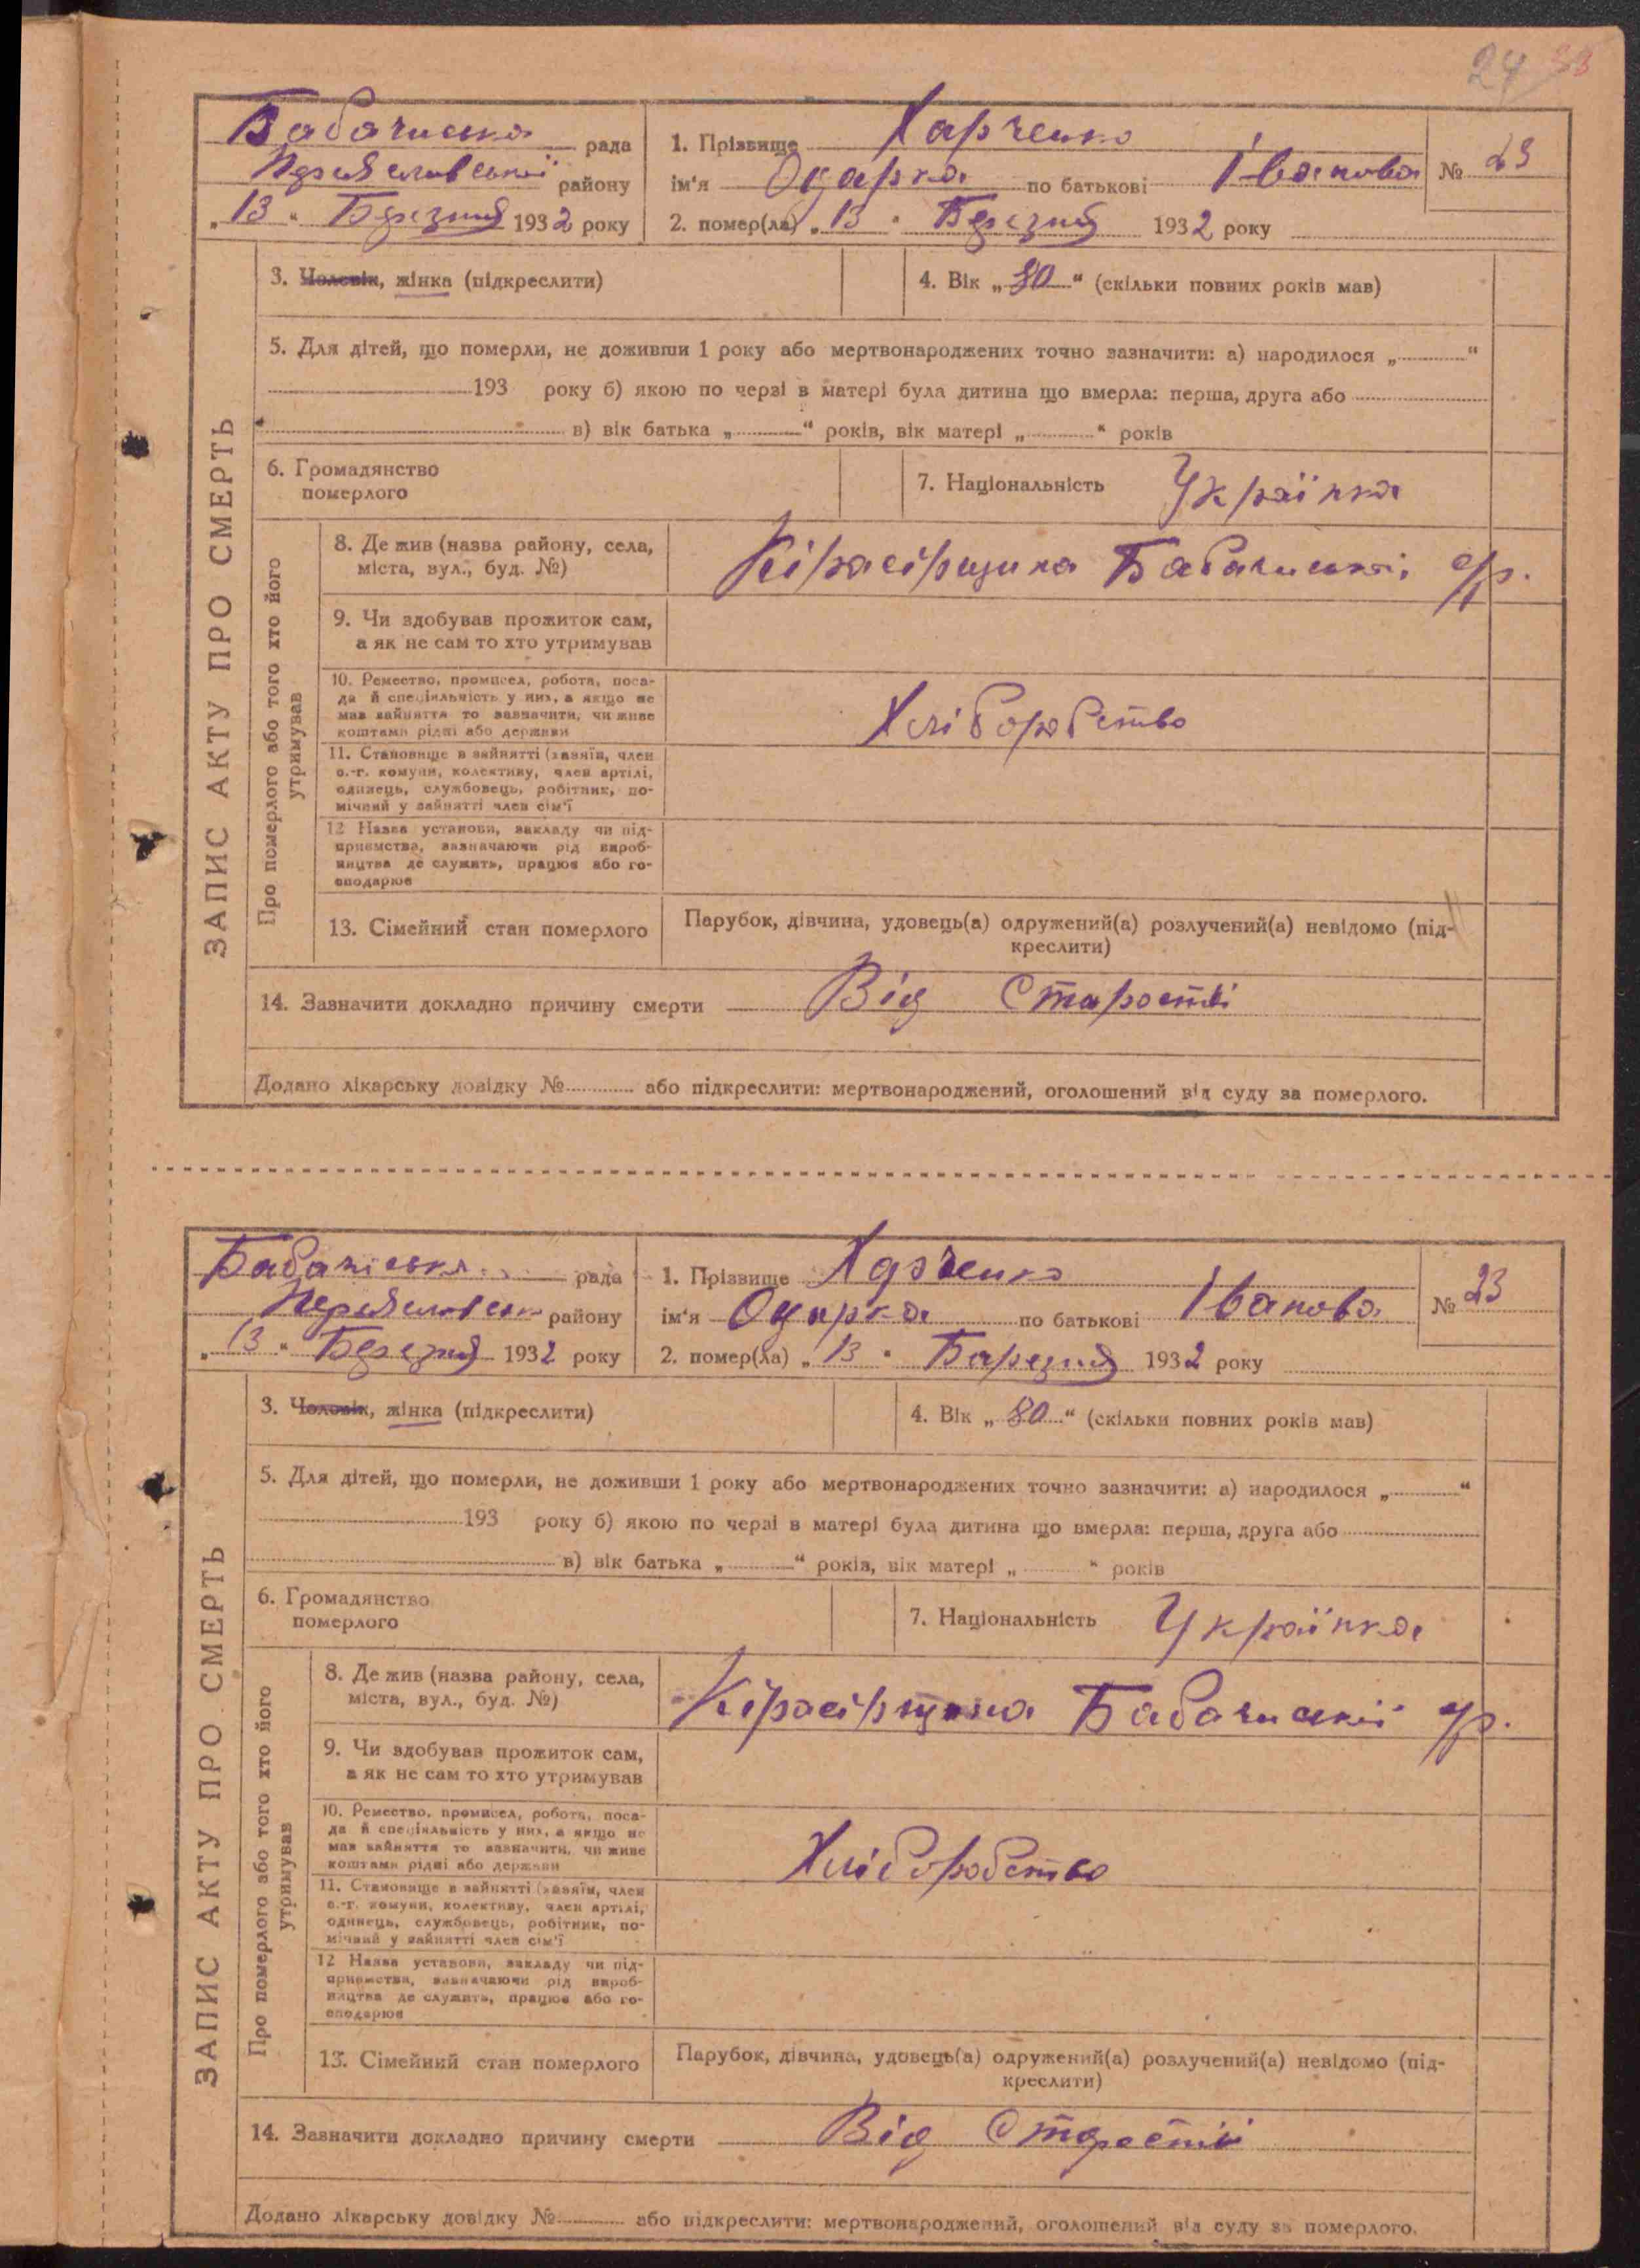 24 33
Бабачиська рада
Переяславської району
„13“ Березня 1932 року
1. Прізвище Харченко
ім'я Одарка по батькові Іванова
№ 23
2. помер(ла) „13“ Березня 1932 року
ЗАПИС АКТУ ПРО СМЕРТЬ
3. Чоловік, жінка (підкреслити)
4. Вік „80“ (скільки повних років мав)
5. Для дітей, що померли, не доживши 1 року або мертвонароджених точно зазначити: а) народилося „ “
193 року б) якою по черзі в матері була дитина що вмерла: перша, друга або
в) вік батька „ “ років, вік матері „ “ років
6. Громадянство
померлого
7. Національність Українка
Про померлого або того хто його
утримував
8. Де жив (назва району, села,
міста, вул., буд. №)
Кірасірщина Бабачиської с/р.
9. Чи здобував прожиток сам,
а як не сам то хто утримував
10. Ремество, промисел, робота, поса-
да й спеціяльність у них, а якщо не
мав зайняття то зазначити, чи живе
коштами рідні або держави
Хліборобство
11. Становище в зайнятті (хазяїн, член
с.-г. комуни, колективу, член артілі,
одинець, службовець, робітник, по-
мічний у зайнятті член сім'ї
12 Назва установи, закладу чи під-
приємства, зазначаючи рід вироб-
ництва де служить, працює або го-
сподарює
13. Сімейний стан померлого
Парубок, дівчина, удовець(а) одружений(а) розлучений(а) невідомо (під-
креслити)
14. Зазначити докладно причину смерти Від Старости
Додано лікарську довідку № або підкреслити: мертвонароджений, оголошений від суду за померлого.
Бабачіська рада
Переяславськ району
„13“ Березня 1932 року
1. Прізвище Харченко
ім'я Одарка по батькові Іванова
№ 23
2. помер(ла) „13“ Березня 1932 року
ЗАПИС АКТУ ПРО СМЕРТЬ
3. Чоловік, жінка (підкреслити)
4. Вік „80“ (скільки повних років мав)
5. Для дітей, що померли, не доживши 1 року або мертвонароджених точно зазначити: а) народилося „ “
193 року б) якою по черзі в матері була дитина що вмерла: перша, друга або
в) вік батька „ “ років, вік матері „ “ років
6. Громадянство
померлого
7. Національність Українка
Про померлого або того хто його
утримував
8. Де жив (назва району, села,
міста, вул., буд. №)
Кірасірщина Бабачиської с/р.
9. Чи здобував прожиток сам,
а як не сам то хто утримував
10. Ремество, промисел, робота, поса-
да й спеціяльність у них, а якщо не
мав зайняття то зазначити, чи живе
коштами рідні або держави
Хліборобство
11. Становище в зайнятті (хазяїн, член
с.-г. комуни, колективу, член артілі,
одинець, службовець, робітник, по-
мічний у зайнятті член сім'ї
12 Назва установи, закладу чи під-
приємства, зазначаючи рід вироб-
ництва де служить, працює або го-
сподарює
13. Сімейний стан померлого
Парубок, дівчина, удовець(а) одружений(а) розлучений(а) невідомо (під-
креслити)
14. Зазначити докладно причину смерти Від Старости
Додано лікарську довідку № або підкреслити: мертвонароджений, оголошений від суду за померлого.